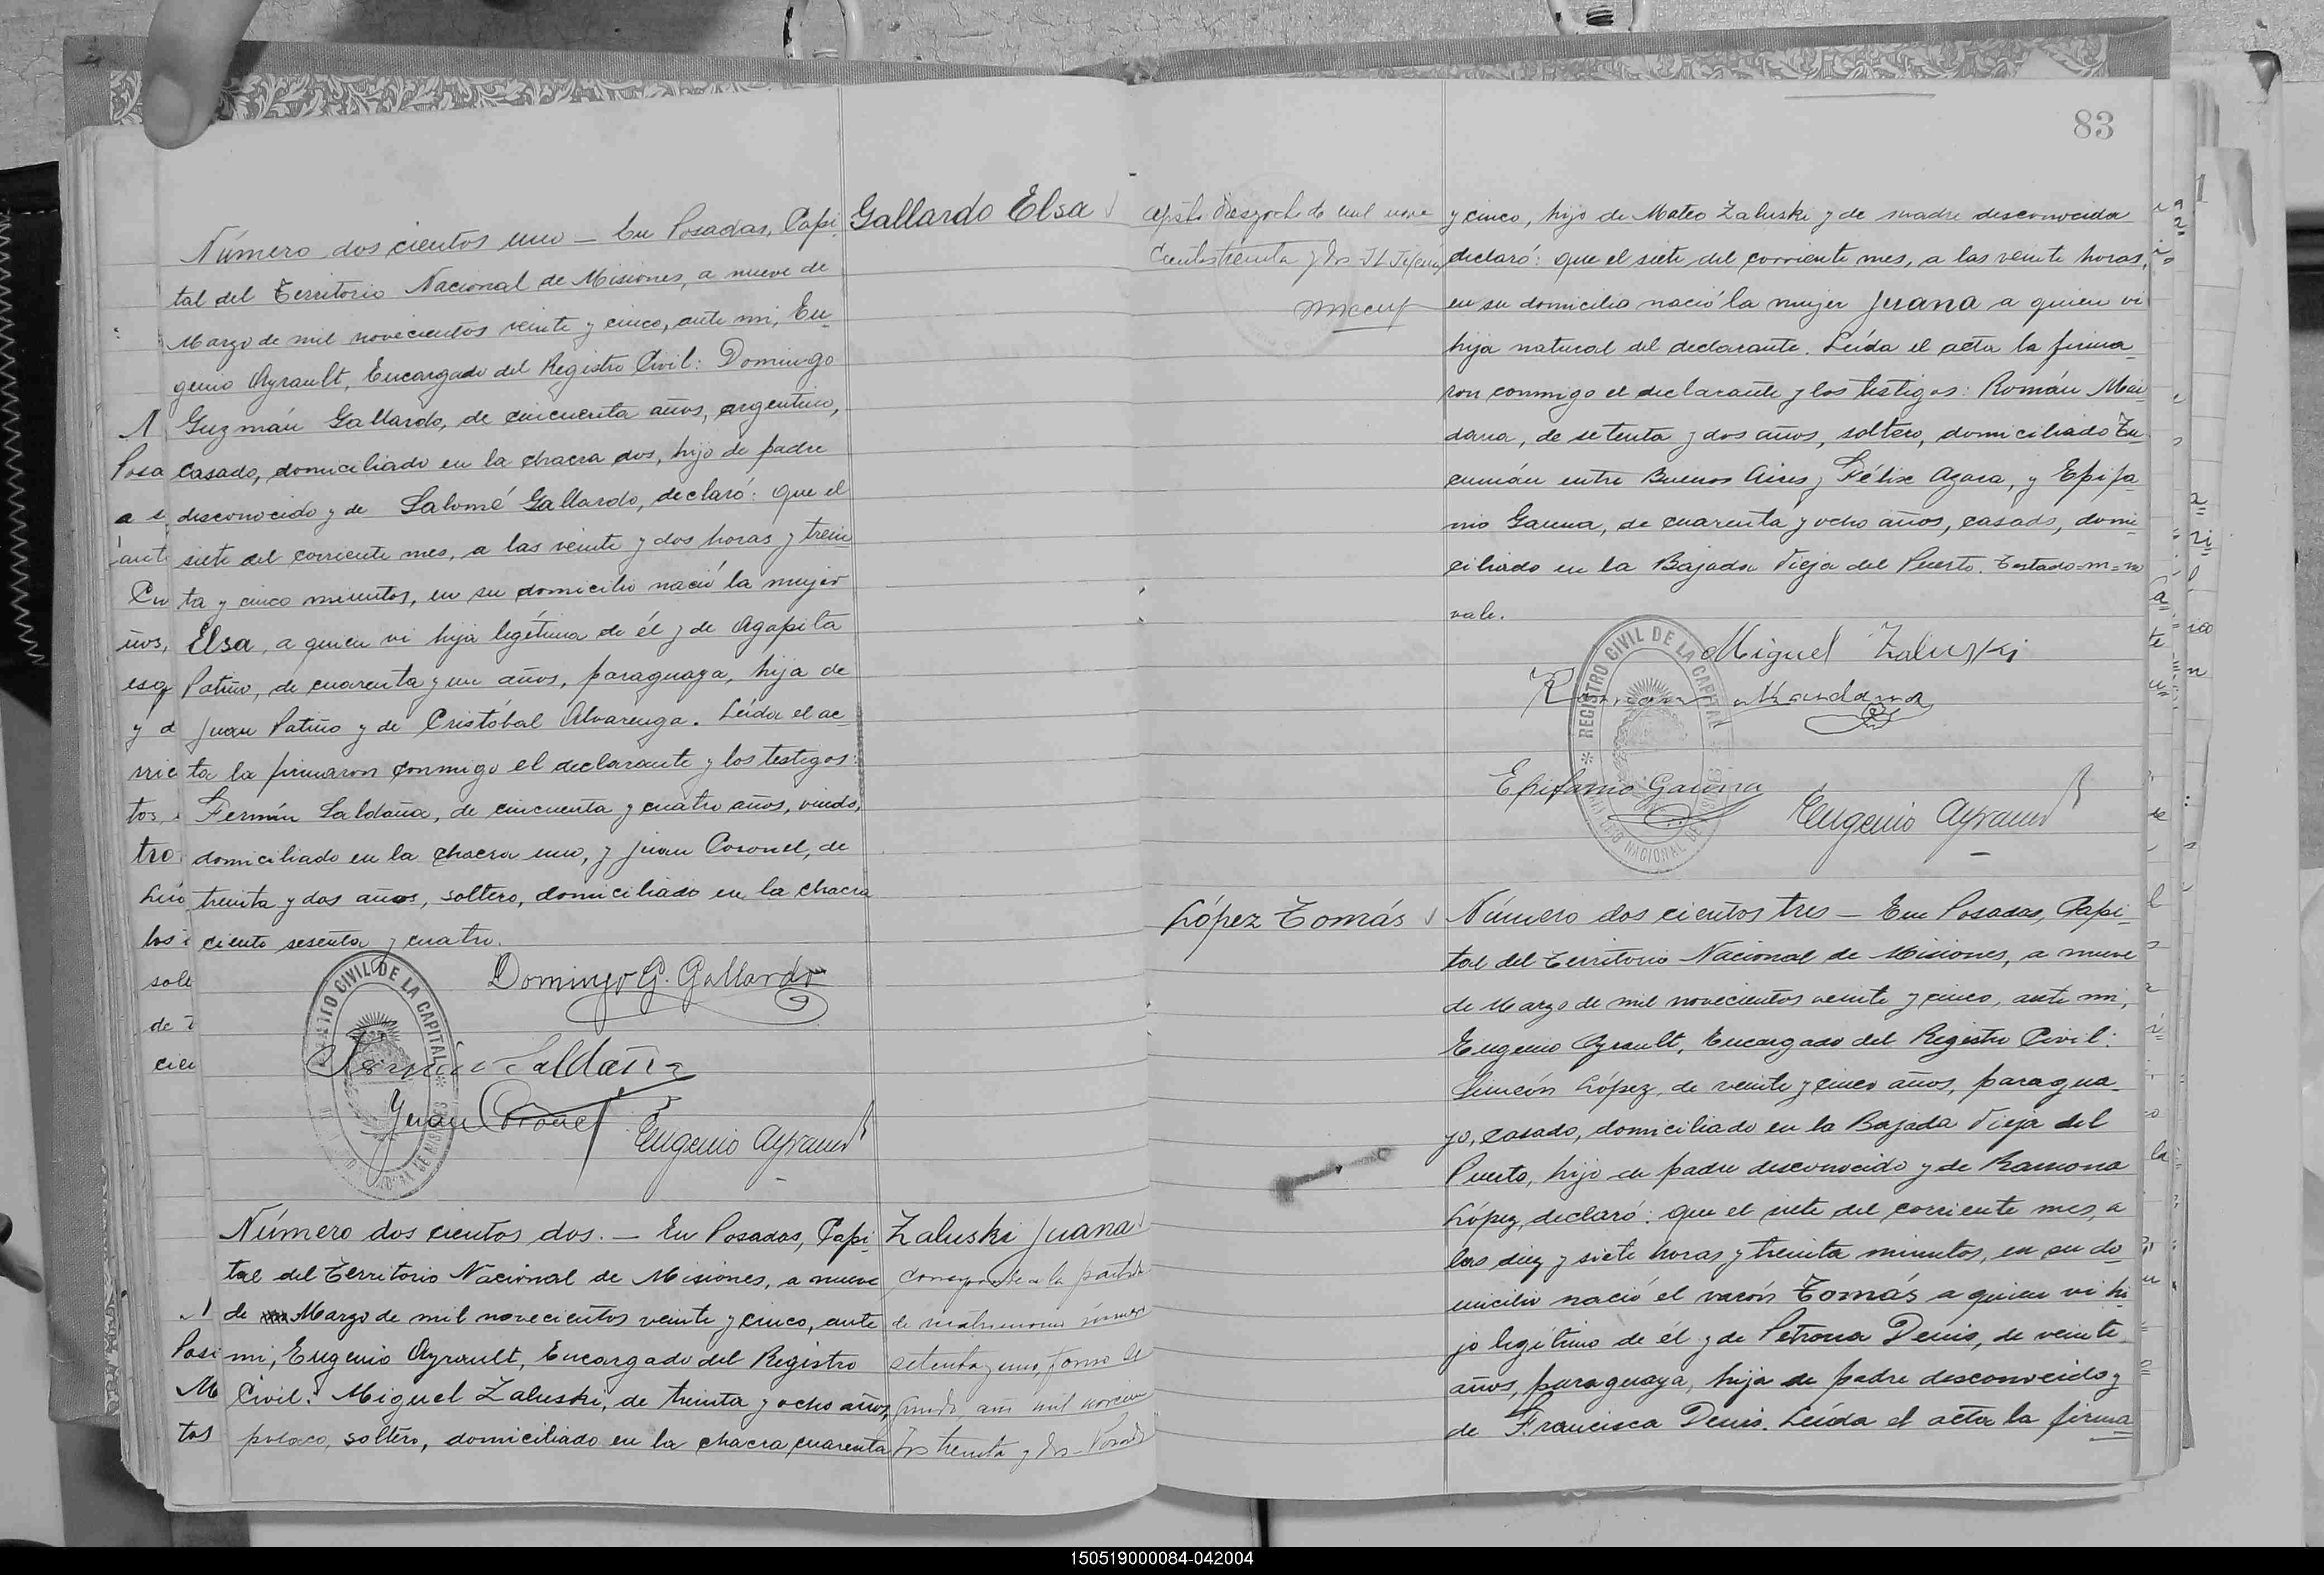 Gallardo Elsa
Número dos cientos uno — En Posadas, Capi-
tal del Territorio Nacional de Misiones, a nueve de
Marzo de mil novecientos veinte y cinco, ante mi, Eu-
genio Ayrault, Encargado del Registro Civil: Domingo
Guzmán Gallardo, de cincuenta años, argentino,
casado, domiciliado en la chacra dos, hijo de padre
desconocido y de Salomé Gallardo, declaró: Que el
siete del corriente mes, a las veinte y dos horas y trein
ta y cinco minutos, en su domicilio nació la mujer
Elsa, a quien vi hija legítima de él y de Agapita
Patiño, de cuarenta y un años, paraguaya, hija de
Juan Patiño y de Cristóbal Alvarenga. Leída el ac-
ta la firmaron conmigo el declarante y los testigos:
Fermín Saldaña, de cincuenta y cuatro años, viudo,
domiciliado en la chacra uno, y Juan Coronel, de
treinta y dos años, soltero, domiciliado en la chacra
ciento sesenta y cuatro.
Domingo G. Gallardo
Fermín Saldaña
Juan Coronel
Eugenio Ayrault
REGISTRO CIVIL DE LA CAPITAL
Zaluski Juana
Número dos cientos dos. — En Posadas, Capi-
tal del Territorio Nacional de Misiones, a nueve
de Marzo de mil novecientos veinte y cinco, ante
mi, Eugenio Ayrault, Encargado del Registro
Civil: Miguel Zaluski, de treinta y ocho años,
polaco, soltero, domiciliado en la chacra cuarenta
corresponde a la partida
de matrimonio número
setenta y uno, tomo se
gundo, año mil novecien
tos treinta y dos - Posadas
83
agosto diez y ocho de mil nove
cientos treinta y dos
y cinco, hijo de Mateo Zaluski y de madre desconocida
declaró: Que el siete del corriente mes, a las veinte horas,
en su domicilio nació la mujer Juana a quien vi
hija natural del declarante. Leída el acta la firma-
ron conmigo el declarante y los testigos: Román Man
dana, de setenta y dos años, soltero, domiciliado Tu-
cumán entre Buenos Aires y Félix Azara, y Epifa-
nio Gauna, de cuarenta y ocho años, casado, domi-
ciliado en la Bajada Vieja del Puerto. Testado=m=no
vale.
Miguel Zaluski
Roman Mandana
Epifanio Gauna
Eugenio Ayrault
REGISTRO CIVIL DE LA CAPITAL
TERRITORIO NACIONAL DE MISIONES
López Tomás
Número dos cientos tres — En Posadas, Capi-
tal del Territorio Nacional de Misiones, a nueve
de Marzo de mil novecientos veinte y cinco, ante mi,
Eugenio Ayrault, Encargado del Registro Civil:
Simeón López, de veinte y cinco años, paragua-
yo, casado, domiciliado en la Bajada Vieja del
Puerto, hijo de padre desconocido y de Ramona
López, declaró: Que el siete del corriente mes, a
las diez y siete horas y treinta minutos, en su do-
micilio nació el varón Tomás a quien vi hi-
jo legítimo de él y de Petrona Denis, de veinte
años, paraguaya, hija de padre desconocido y
de Francisca Denis. Leída el acta la firma
150519000084-042004